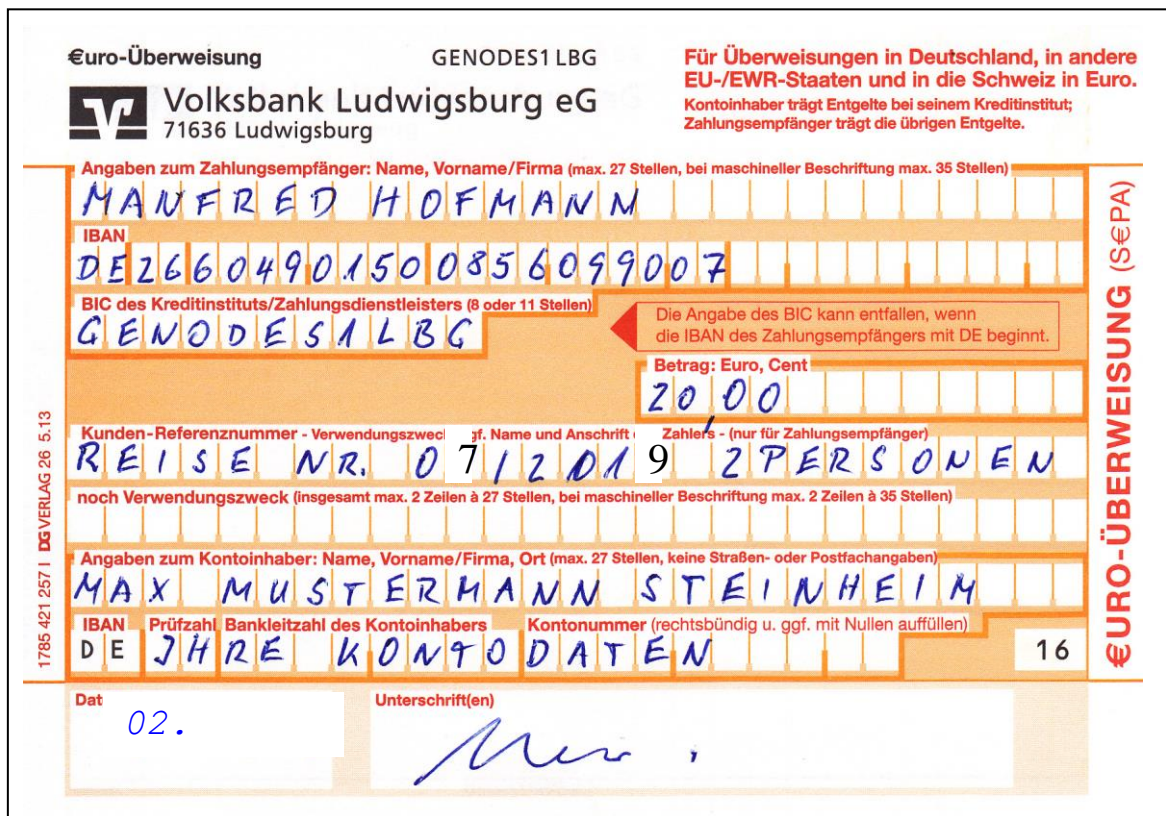 €uro-Überweisung GENODES1 LBG
Für Überweisungen in Deutschland, in andere
EU-/EWR-Staaten und in die Schweiz in Euro.
Volksbank Ludwigsburg eG
71636 Ludwigsburg
Kontoinhaber trägt Entgelte bei seinem Kreditinstitut;
Zahlungsempfänger trägt die übrigen Entgelte.
Angaben zum Zahlungsempfänger: Name, Vorname/Firma (max. 27 Stellen, bei maschineller Beschriftung max. 35 Stellen)
MANFRED HOFMANN
IBAN
DE26604901500856099007
BIC des Kreditinstituts/Zahlungsdienstleisters (8 oder 11 Stellen)
GENODES1LBG
Die Angabe des BIC kann entfallen, wenn
die IBAN des Zahlungsempfängers mit DE beginnt.
Betrag: Euro, Cent
20,00
Kunden-Referenznummer - Verwendungszwec gf. Name und Anschrift Zahlers - (nur für Zahlungsempfänger)
REISE NR. 07/2019 2PERSONEN
noch Verwendungszweck (insgesamt max. 2 Zeilen à 27 Stellen, bei maschineller Beschriftung max. 2 Zeilen à 35 Stellen)
Angaben zum Kontoinhaber: Name, Vorname/Firma, Ort (max. 27 Stellen, keine Straßen- oder Postfachangaben)
MAX MUSTERMANN STEINHEIM
IBAN Prüfzahl Bankleitzahl des Kontoinhabers Kontonummer (rechtsbündig u. ggf. mit Nullen auffüllen)
DE IHRE KONTODATEN 16
Dat Unterschrift(en)
02.
€URO-ÜBERWEISUNG (S€PA)
1785 421 2257 I DG VERLAG 26 5.13